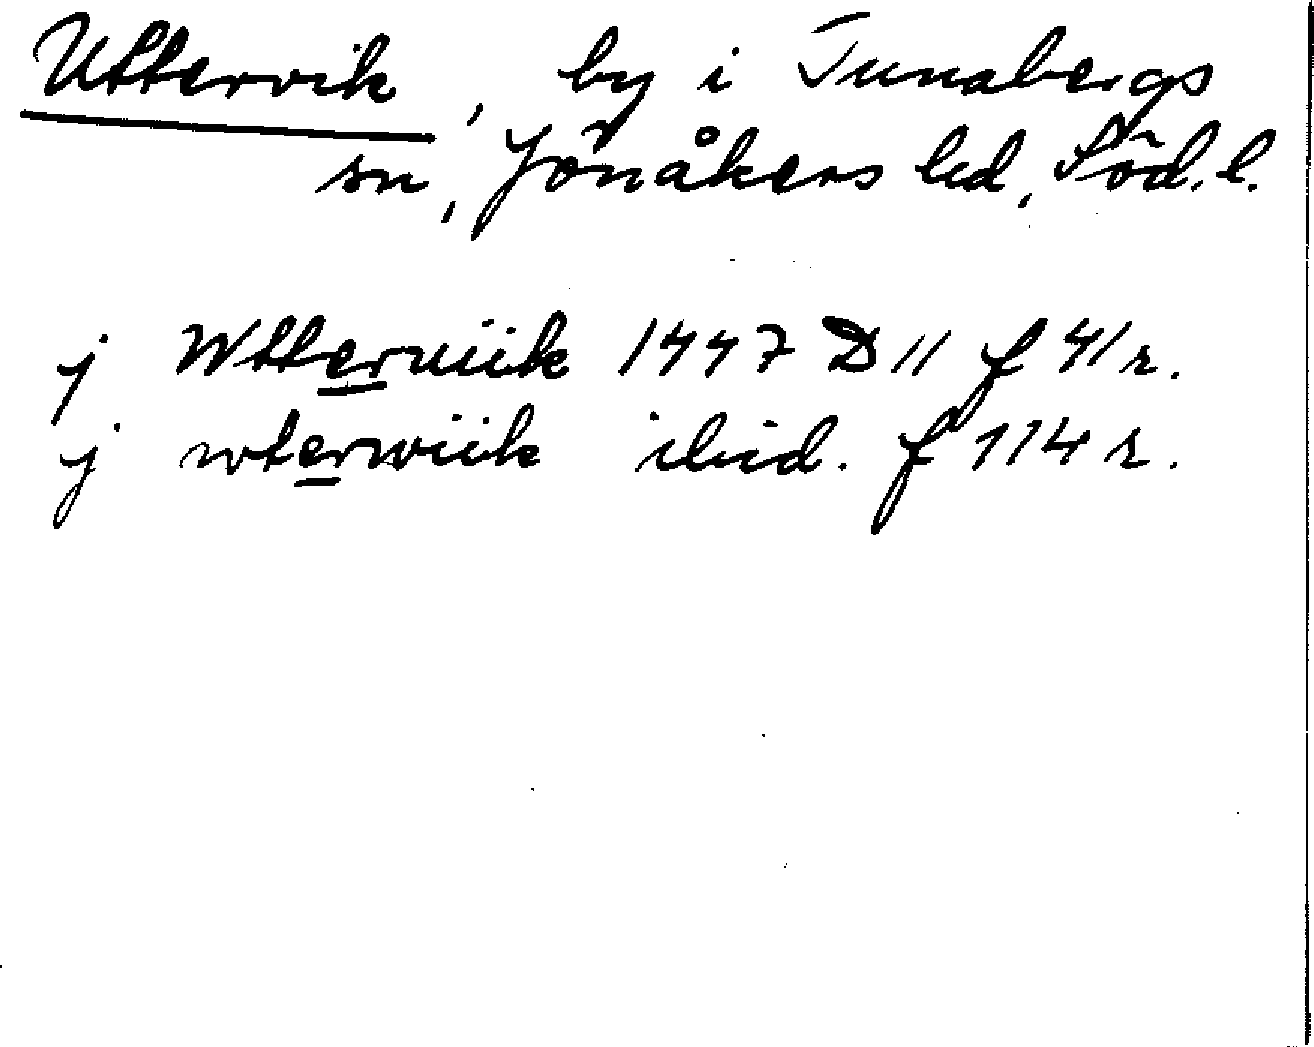 Uttervik, by i Tunabergs
sn, Jönåkers hd, Söd. l.
j Wtteruiik 1447 D 11 f 41 r.
j wterwiik ibid. f 114 r.